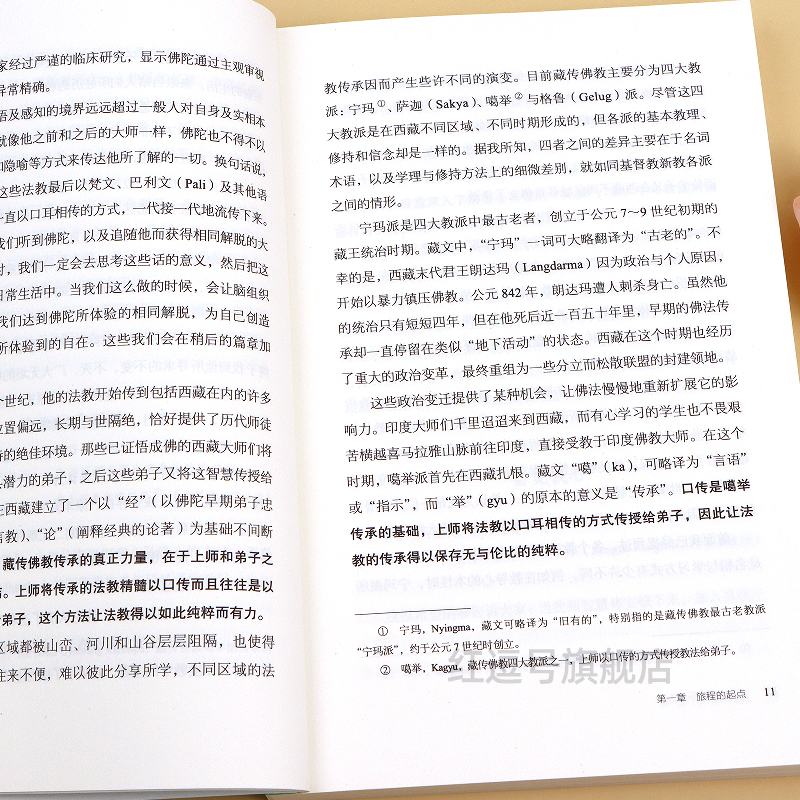 家经过严谨的临床研究，显示佛陀通过主观审视
异常精确。
语及感知的境界远远超过一般人对自身及实相本
就像他之前和之后的大师一样，佛陀也不得不以
和隐喻等方式来传达他所了解的一切。换句话说，
这些法教最后以梵文、巴利文（Pali）及其他语
一直以口耳相传的方式，一代接一代地流传下来。
我们听到佛陀，以及追随他而获得相同解脱的大
时，我们一定会去思考这些话的意义，然后把这
日常生活中。当我们这么做的时候，会让脑组织
我们达到佛陀所体验的相同解脱，为自己创造
所体验到的自在。这些我们会在稍后的篇章加
个世纪，他的法教开始传到包括西藏在内的许多
位置偏远，长期与世隔绝，恰好提供了历代师徒
持的绝佳环境。那些已证悟成佛的西藏大师们将
具潜力的弟子，之后这些弟子又将这智慧传授给
在西藏建立了一个以“经”（以佛陀早期弟子忠
言教）、“论”（阐释经典的论著）为基础不间断
藏传佛教传承的真正力量，在于上师和弟子之
上师将传承的法教精髓以口传而且往往是以
弟子，这个方法让法教得以如此纯粹而有力。
区域都被山峦、河川和山谷层层阻隔，也使得
往来不便，难以彼此分享所学，不同区域的法
教传承因而产生些许不同的演变。目前藏传佛教主要分为四大教
派：宁玛①、萨迦（Sakya）、噶举②与格鲁（Gelug）派。尽管这四
大教派是在西藏不同区域、不同时期形成的，但各派的基本教理、
修持和信念却是一样的。据我所知，四者之间的差异主要在于名词
术语，以及学理与修持方法上的细微差别，就如同基督教新教各派
之间的情形。
宁玛派是四大教派中最古老者，创立于公元7~9世纪初期的
藏王统治时期。藏文中，“宁玛”一词可大略翻译为“古老的”。不
幸的是，西藏末代君王朗达玛（Langdarma）因为政治与个人原因，
开始以暴力镇压佛教。公元842年，朗达玛遭人刺杀身亡。虽然他
的统治只有短短四年，但在他死后近一百五十年里，早期的佛法传
承却一直停留在类似“地下活动”的状态。西藏在这个时期也经历
了重大的政治变革，最终重组为一些分立而松散联盟的封建领地。
这些政治变迁提供了某种机会，让佛法慢慢地重新扩展它的影
响力。印度大师们千里迢迢来到西藏，而有心学习的学生也不畏艰
苦横越喜马拉雅山脉前往印度，直接受教于印度佛教大师。在这个
时期，噶举派首先在西藏扎根。藏文“噶”（ka），可略译为“言语”
或“指示”，而“举”（gyu）的原本的意义是“传承”。口传是噶举
传承的基础，上师将法教以口耳相传的方式传授给弟子，因此让法
教的传承得以保存无与伦比的纯粹。
① 宁玛，Nyingma，藏文可略译为“旧有的”，特别指的是藏传佛教最古老教派
“宁玛派”，约于公元7世纪时创立。
② 噶举，Kagyu，藏传佛教四大教派之一，上师以口传的方式传授教法给弟子。
红运号旗舰店
第一章 旅程的起点 11